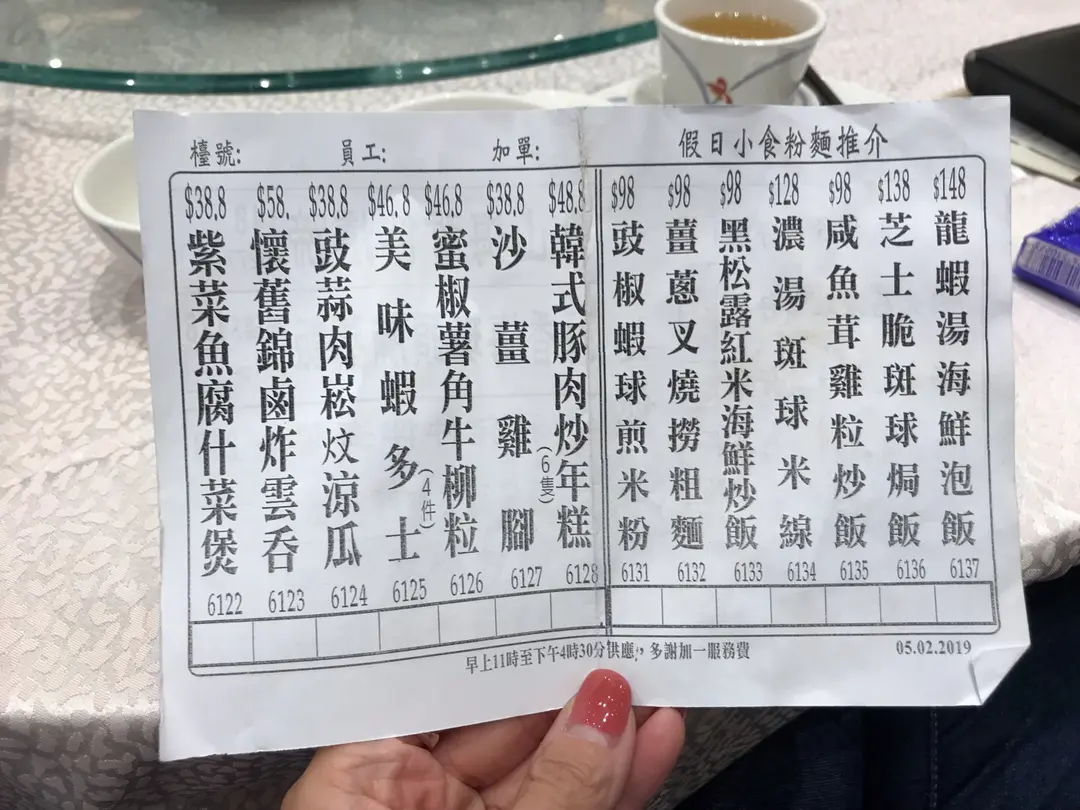 檯號:
員工:
加單:
假日小食粉麵推介
$148 龍蝦湯海鮮泡飯 6137
$138 芝士脆斑球焗飯 6136
$98 咸魚茸雞粒炒飯 6135
$128 濃湯斑球米線 6134
$98 黑松露紅米海鮮炒飯 6133
$98 薑蔥叉燒撈粗麵 6132
$98 豉椒蝦球煎米粉 6131
$48.8 韓式豚肉炒年糕 6128
$38.8 沙薑雞腳(6隻) 6127
$46.8 蜜椒薯角牛柳粒 6126
$46.8 美味蝦多士(4件) 6125
$38.8 豉蒜肉崧炆涼瓜 6124
$58. 懷舊錦鹵炸雲吞 6123
$38.8 紫菜魚腐什菜煲 6122
早上11時至下午4時30分供應，多謝加一服務費
05.02.2019